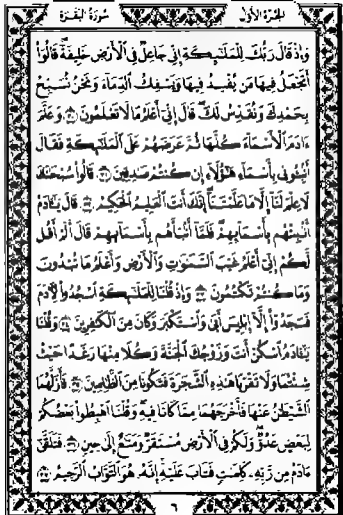 الجزء الأول
سورة البقرة
وَإِذْ قَالَ رَبُّكَ لِلْمَلَٰٓئِكَةِ إِنِّى جَاعِلٌ فِى ٱلْأَرْضِ خَلِيفَةً ۖ قَالُوٓا۟
أَتَجْعَلُ فِيهَا مَن يُفْسِدُ فِيهَا وَيَسْفِكُ ٱلدِّمَآءَ وَنَحْنُ نُسَبِّحُ
بِحَمْدِكَ وَنُقَدِّسُ لَكَ ۖ قَالَ إِنِّىٓ أَعْلَمُ مَا لَا تَعْلَمُونَ ﴿٣٠﴾ وَعَلَّمَ
ءَادَمَ ٱلْأَسْمَآءَ كُلَّهَا ثُمَّ عَرَضَهُمْ عَلَى ٱلْمَلَٰٓئِكَةِ فَقَالَ
أَنۢبِـُٔونِى بِأَسْمَآءِ هَٰٓؤُلَآءِ إِن كُنتُمْ صَٰدِقِينَ ﴿٣١﴾ قَالُوا۟ سُبْحَٰنَكَ
لَا عِلْمَ لَنَآ إِلَّا مَا عَلَّمْتَنَآ ۖ إِنَّكَ أَنتَ ٱلْعَلِيمُ ٱلْحَكِيمُ ﴿٣٢﴾ قَالَ يَٰٓـَٔادَمُ
أَنۢبِئْهُم بِأَسْمَآئِهِمْ ۖ فَلَمَّآ أَنۢبَأَهُم بِأَسْمَآئِهِمْ قَالَ أَلَمْ أَقُل
لَّكُمْ إِنِّىٓ أَعْلَمُ غَيْبَ ٱلسَّمَٰوَٰتِ وَٱلْأَرْضِ وَأَعْلَمُ مَا تُبْدُونَ
وَمَا كُنتُمْ تَكْتُمُونَ ﴿٣٣﴾ وَإِذْ قُلْنَا لِلْمَلَٰٓئِكَةِ ٱسْجُدُوا۟ لِـَٔادَمَ
فَسَجَدُوٓا۟ إِلَّآ إِبْلِيسَ أَبَىٰ وَٱسْتَكْبَرَ وَكَانَ مِنَ ٱلْكَٰفِرِينَ ﴿٣٤﴾ وَقُلْنَا
يَٰٓـَٔادَمُ ٱسْكُنْ أَنتَ وَزَوْجُكَ ٱلْجَنَّةَ وَكُلَا مِنْهَا رَغَدًا حَيْثُ
شِئْتُمَا وَلَا تَقْرَبَا هَٰذِهِ ٱلشَّجَرَةَ فَتَكُونَا مِنَ ٱلظَّٰلِمِينَ ﴿٣٥﴾ فَأَزَلَّهُمَا
ٱلشَّيْطَٰنُ عَنْهَا فَأَخْرَجَهُمَا مِمَّا كَانَا فِيهِ ۖ وَقُلْنَا ٱهْبِطُوا۟ بَعْضُكُمْ
لِبَعْضٍ عَدُوٌّ ۖ وَلَكُمْ فِى ٱلْأَرْضِ مُسْتَقَرٌّ وَمَتَٰعٌ إِلَىٰ حِينٍ ﴿٣٦﴾ فَتَلَقَّىٰٓ
ءَادَمُ مِن رَّبِّهِۦ كَلِمَٰتٍ فَتَابَ عَلَيْهِ ۚ إِنَّهُۥ هُوَ ٱلتَّوَّابُ ٱلرَّحِيمُ ﴿٣٧﴾
٦